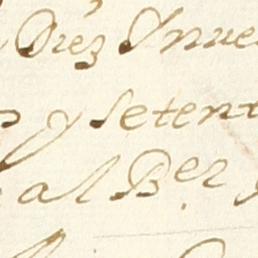 Diez Y nue
y setent
al B.er